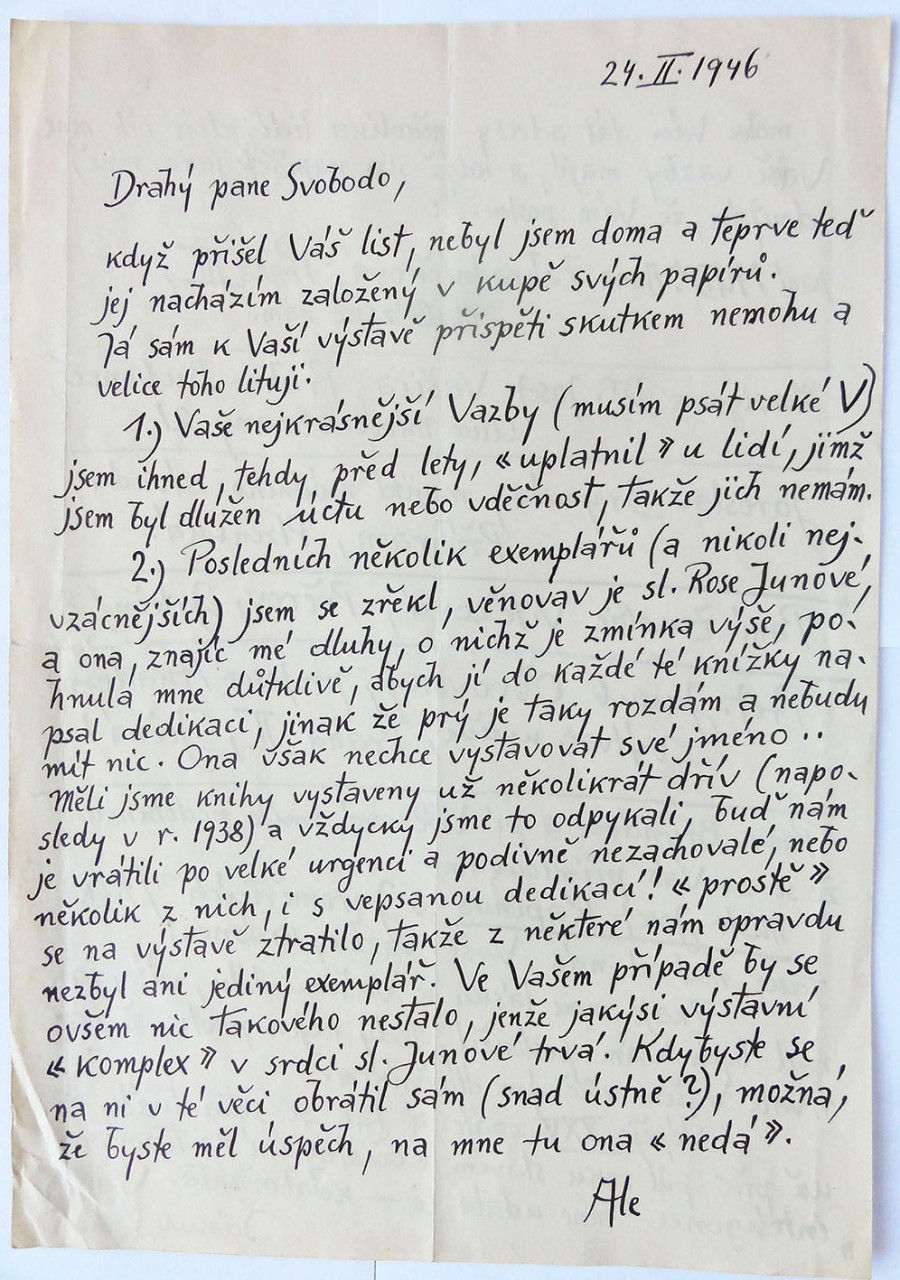 24.II.1946
Drahý pane Svobodo,
když přišel Váš list, nebyl jsem doma a teprve teď
jej nacházím založený v kupě svých papírů.
Já sám k Vaší výstavě přispěti skutkem nemohu a
velice toho lituji.
1.) Vaše nejkrásnější Vazby (musím psát velké V)
jsem ihned, tehdy, před lety, «uplatnil» u lidí, jimž
jsem byl dlužen úctu nebo vděčnost, takže jich nemám.
2.) Posledních několik exemplářů (a nikoli nej-
vzácnějších) jsem se zřekl, věnovav je sl. Rose Junové,
a ona, znajíc mé dluhy, o nichž je zmínka výše, po-
hnula mne důtklivě, abych jí do každé té knížky na-
psal dedikaci, jinak že prý je taky rozdám a nebudu
mít nic. Ona však nechce vystavovat své jméno..
Měli jsme knihy vystaveny už několikrát dřív (napo-
sledy v r. 1938) a vždycky jsme to odpykali, buď nám
je vrátili po velké urgenci a podivně nezachovalé, nebo
několik z nich, i s vepsanou dedikací! «prostě»
se na výstavě ztratilo, takže z některé nám opravdu
nezbyl ani jediný exemplář. Ve Vašem případě by se
ovšem nic takového nestalo, jenže jakýsi výstavní
«komplex» v srdci sl. Junové trvá. Kdybyste se
na ni v té věci obrátil sám (snad ústně?), možná,
že byste měl úspěch, na mne tu ona «nedá».
Ale